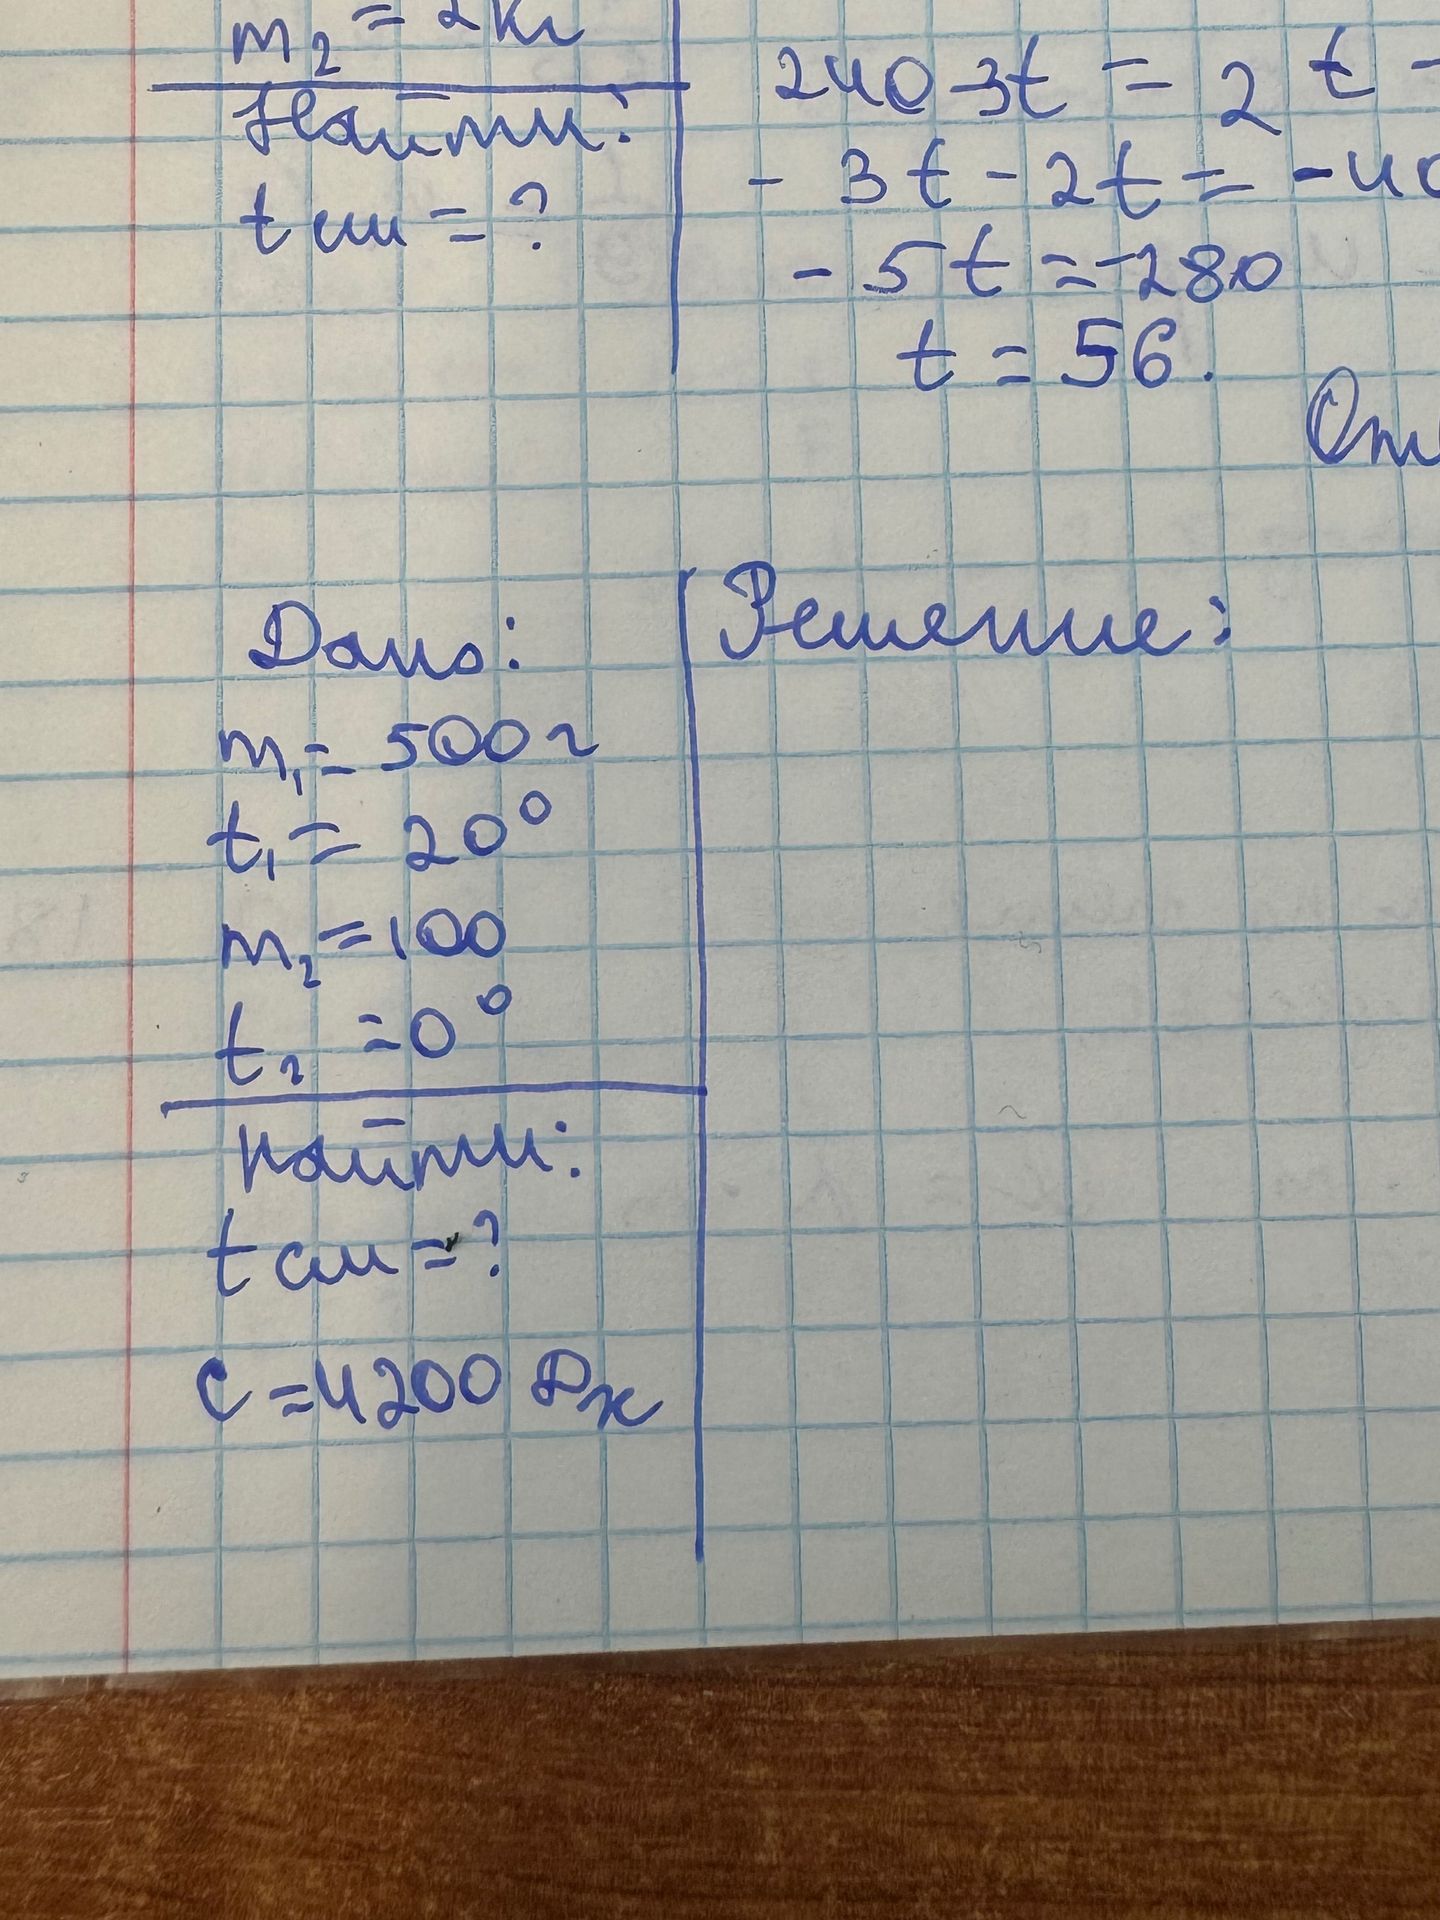 m₂ = 2кг
Найти:
t см = ?
240 - 3t = 2t -
- 3t - 2t = - 40
- 5t = -280
t = 56.
Дано:
m₁ = 500 г
t₁ = 20°
m₂ = 100
t₂ = 0°
Найти:
t см = ?
C = 4200 Дж
Решение: